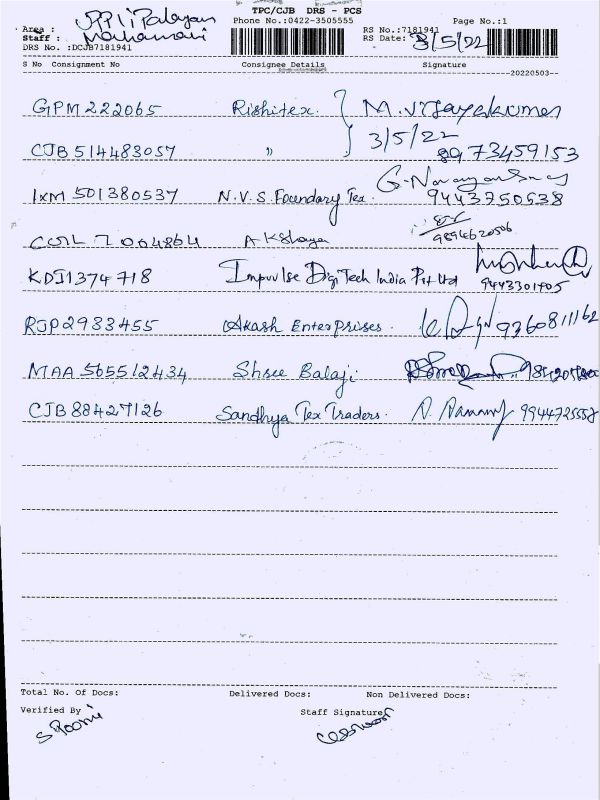 TPC/CJB DRS - PCS
Area :
Phone No.:0422-3505555
Page No.:1
Staff :
RS No.:7181941
DRS No. :DCJB7181941
RS Date: 3/5/22
S No Consignment No Consignee Details Signature
20220503
GPM 222065 Rishitex. M. Vijayakumar
3/5/22
CJB 514483057 " 8973459153
IXM 501380537 N.V.S. Foundary Tex. 9443750538
Akshaya 9894620506
KDI1374718 Impuulse DigiTech India Pvt Ltd 9443301405
RJP2983455 Akash Enterprises. 9360811162
MAA 565512434 Shree Balaji
CJB 88427126 Sandhya Tex Traders. 9944725558
Total No. Of Docs: Delivered Docs: Non Delivered Docs:
Verified By Staff Signature